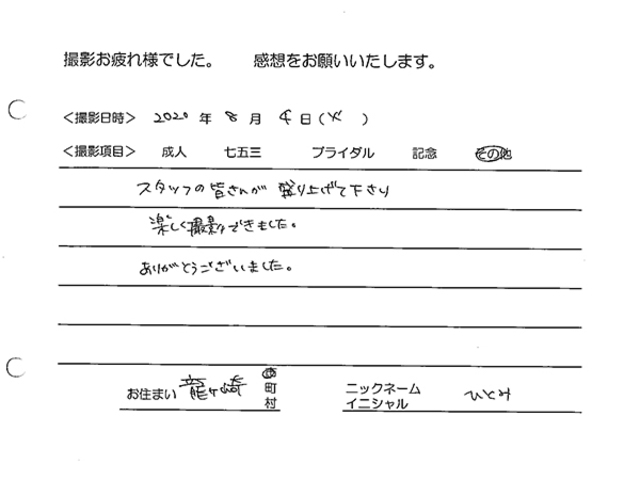 撮影お疲れ様でした。 感想をお願いいたします。
＜撮影日時＞ 2020 年 8 月 4 日(火 )
＜撮影項目＞ 成人 七五三 ブライダル 記念 その他
スタッフの皆さんが 盛り上げて下さり
楽しく撮影できました。
ありがとうございました。
お住まい 龍ヶ崎 市 町 村 ニックネーム イニシャル ひとみ